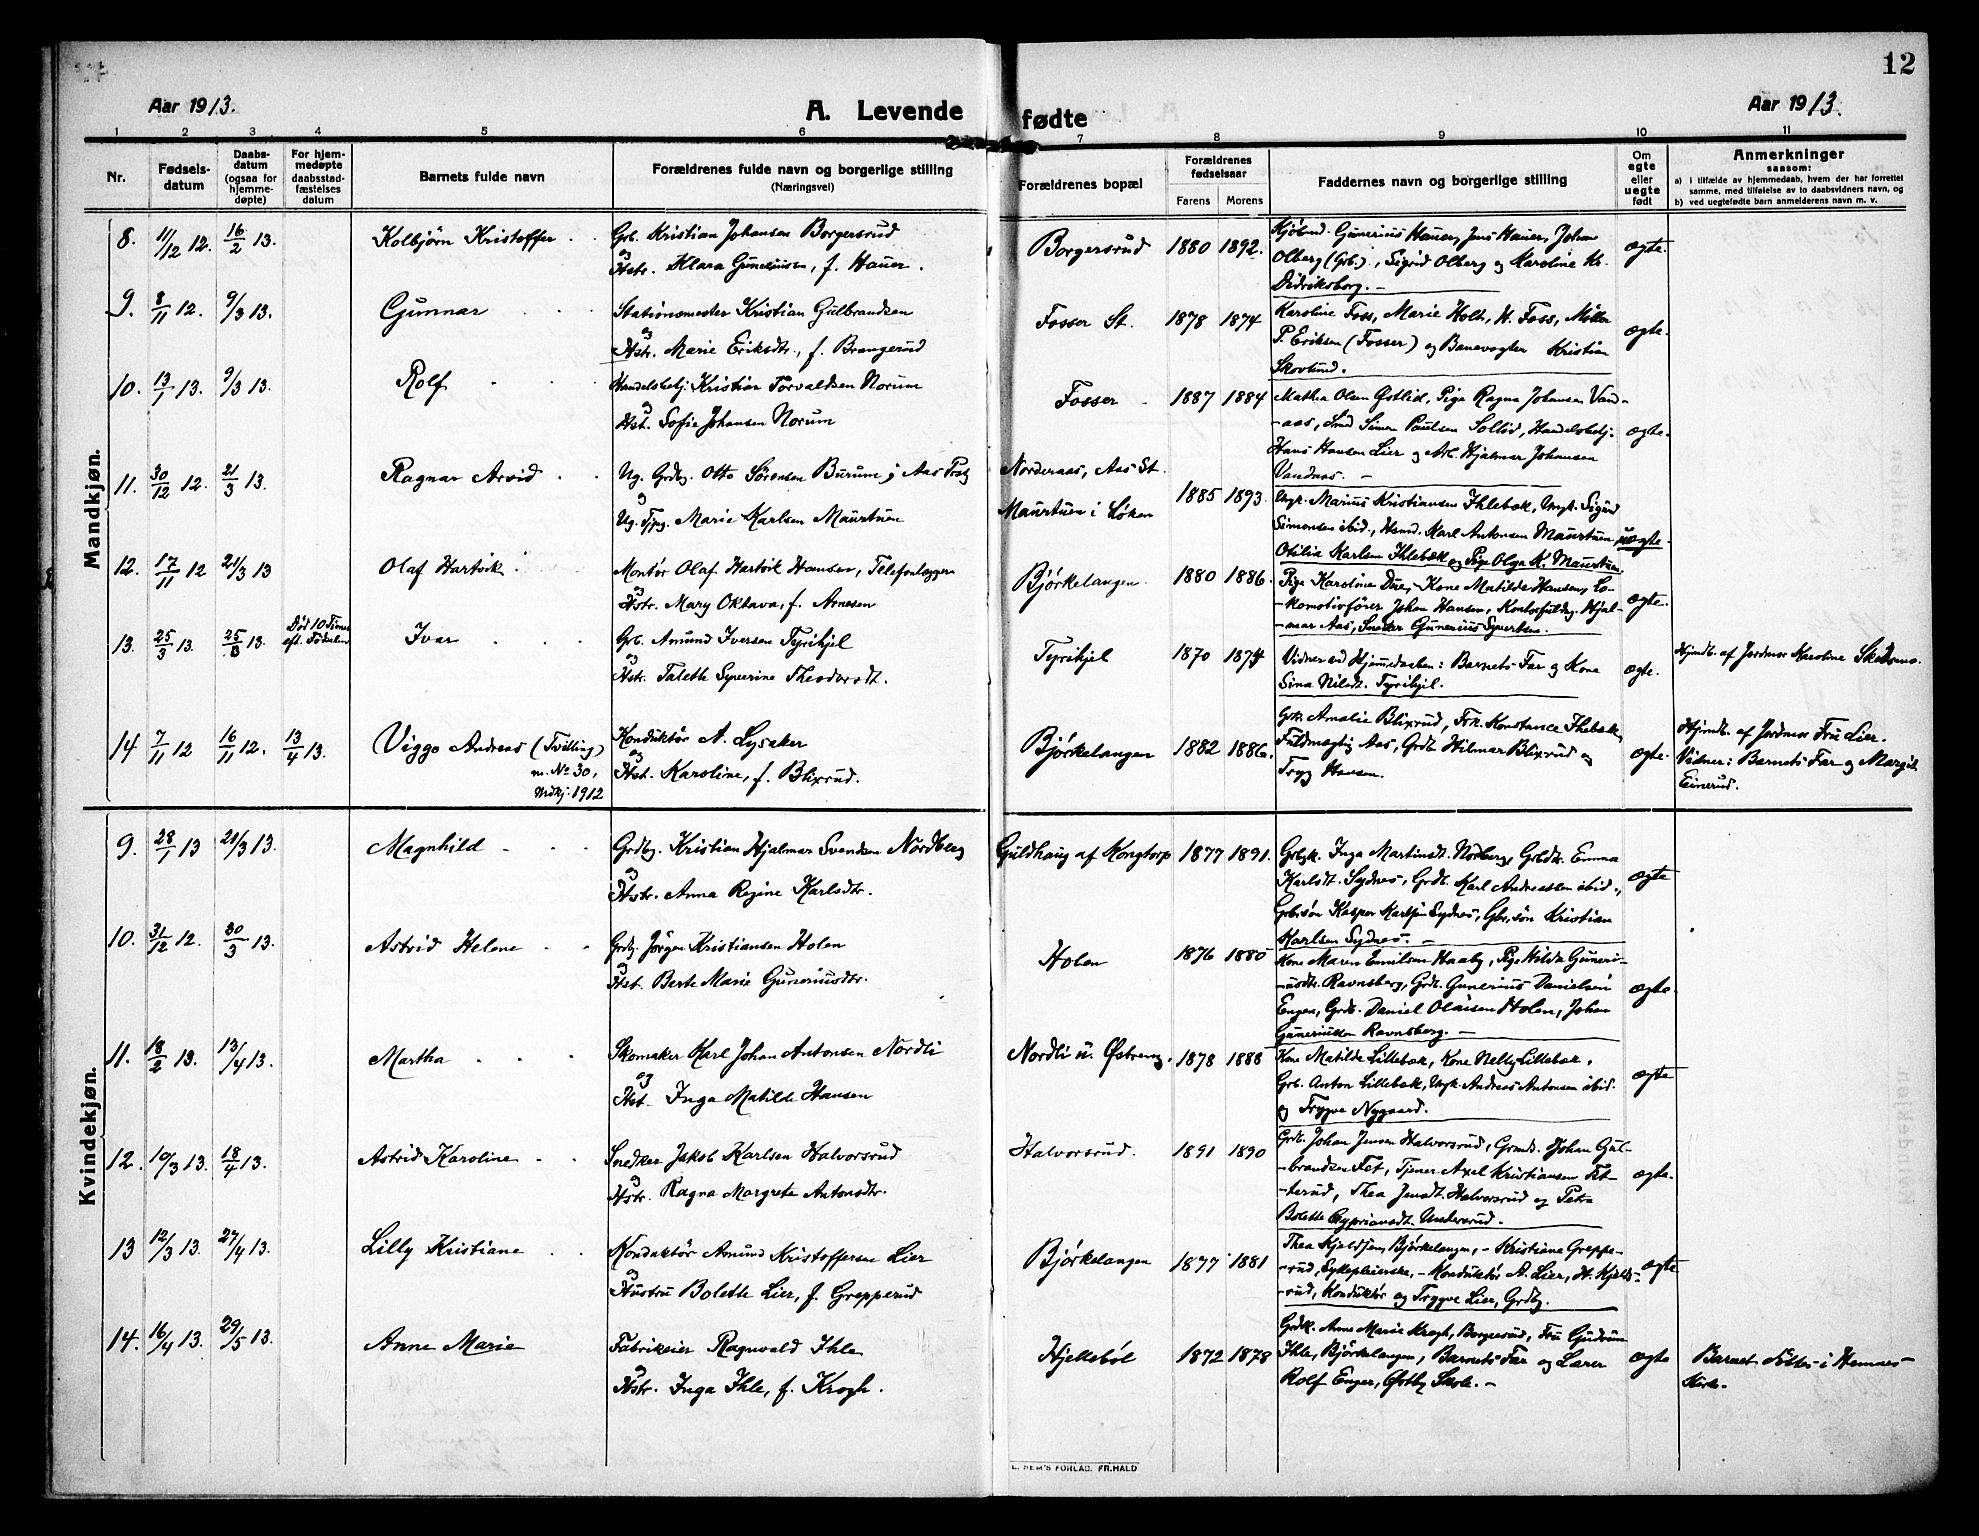 12
Aar 1913.
A. Levende
fødte
Aar 1913.
1 2 3 4 5 6 7 8 9 10 11
Nr.
Fødsels-
datum
Daabs-
datum
(ogsaa for
hjemme-
døpte)
For hjem-
medøpte
daabsstad-
fæstelses
datum
Barnets fulde navn
Forældrenes fulde navn og borgerlige stilling
(Næringsvei)
Forældrenes bopæl
Forældrenes
fødselsaar
Farens Morens
Faddernes navn og borgerlige stilling
Om
egte
eller
uegte
født
Anmerkninger
saasom:
a) i tilfælde av hjemmedaab, hvem der har forrettet
samme, med tilføielse av to daabsvidners navn, og
b) ved uegtefødte barn anmelderens navn m. v.
Mandkjøn.
8. 11/12 12. 16/2 13. Kolbjørn Kristoffer
Grb. Kristian Johansen Borgersrud
og
Hstr. Klara Gunerinsen, f. Hauer.
Borgersrud 1880 1892.
Kjøbmd. Gunerius Hauer, Jens Hauer, Johan
Olberg (Grb.), Sigrid Olberg og Karoline Kr.
Didriksborg. -
ægte.
9. 8/11 12. 9/3 13. Gunnar
Stationsmester Kristian Gulbrandsen
og
Hstr. Marie Eriksdtr., f. Brangerud
Fosser St. 1878 1874
Karoline Foss, Marie Holt, K. Foss, Møller
P. Eriksen (Fosser) og Banevogter Kristian
Skovlund.
ægte.
10. 13/1 13. 9/3 13. Rolf
Handelsbetj. Kristian Torvaldsen Norum
og
Hst. Sofie Johansen Norum
Fosser 1887 1884
Mathea Olsen Østlid, Pige Ragna Johansen Vand-
-aas, Smed Simen Paulsen Sollid, Handelsbetj.
Hans Hansen Lier og Arb. Hjalmar Johansen
Vandaas. -
ægte.
11. 30/12 12. 21/3 13. Ragnar Arvid
Ug. Grdbg. Otto Sørensen Burum, Aas
og
Ug. Tjpg. Marie Karlsen Maurtuen
Norderaas, Aas St.
Maurtuen i Løken
1885 1893.
Ungk. Marius Kristiansen Ihlebæk, Ungk. Sigurd
Simonsen ibid., Hsmd. Karl Antonsen Maurtuen,
Otilia Karlsen Ihlebæk og Pige Olga K. Maurtuen.
uægte.
12. 17/11 12 21/3 13 Olaf Hartvik
Montør Olaf Hartvik Hansen, Telefonlægger
og
Hstr. Mary Oktava, f. Arnesen
Bjørkelangen 1880 1886.
Pige Karoline Due, - Kone Matilde Hansen, Lo-
-komotivfører Johan Hansen, Kontorfuldm. Hjal-
-mar Aas, Snedker Gunerius Syvertsen.
ægte.
13. 25/3 13. 25/3 13.
Død 10 Timer
eft. Fødselen
Ivar
Grb. Amund Iversen Tyrihjel
og
Hstr. Talette Syverine Theodorsdt.
Tyrihjel 1870 1874
Vidner ved Hjemmedaaben: Barnets Far og Kone
Sina Nilsdt. Tyrihjel.
ægte.
Hjmdb. af Jordmor Karoline Skedsmo.
14 7/11 12 16/11 12. 13/4 13. Viggo Andreas (Tvilling)
m. No 30,
Mdkj. 1912
Konduktør A. Lysaker
og
Hst. Karoline, f. Blixrud.
Bjørkelangen 1882 1886.
Grk. Amalie Blixrud, Frk. Konstance Ihlebæk,
Fuldmægtig Aas, Grdb. Hilmar Blixrud og
Tryg Hansen.
ægte.
Hjmdb. af Jordmor Fru Lier.
Vidner: Barnets Far og Margit
Einerud.
Kvindekjøn.
9. 28/1 13 21/3 13. Magnhild
Grdbg. Kristian Hjalmar Svendsen Nordberg
og
Hstr. Anna Regine Karlsdtr.
Guldhaug af Kongtorp 1877 1891.
Grbgk. Inga Martinsdt. Norberg, Grbdk. Emma
Karlsdt. Sydnes, Grdb. Karl Andreassen ibid.,
Grbsøn Kasper Karlsen Sydnes, Gbr.søn Kristian
Karlsen Sydnes. -
ægte
10. 31/12 12. 30/3 13. Astrid Helene
Grdbg. Jørgen Kristiansen Holen
og
Hst. Berte Marie Guneriusdtr.
Holen 1876 1880
Kone Maren Emilsen Haaby, Pige Hilda Guneri-
-usdtr. Ravnsberg, Grdb. Gunerius Danielsen
Engen, Grdb. Daniel Olaisen Holen, Johan
Guneriussen Ravnsberg. -
ægte.
11. 18/2 13. 13/4 13. Martha
Skomaker Karl Johan Antonsen Nordli
og
Hst. Inga Matilde Hansen
Nordli u. Østreng. 1878 1888
Kone Matilde Lillebæk, Kone Nelly Lillebæk.
Grb. Anton Lillebæk, Ungk. Andreas Antonsen ibid.
og Trygve Nygaard.
ægte
12. 10/3 13. 18/4 13. Astrid Karoline
Snedker Jakob Karlsen Halvorsrud
og
Hstr. Ragna Margrete Antonsdtr.
Halvorsrud. 1891 1890
Grdb. Johan Jensen Halvorsrud, Grmd. Johan Gul-
-brandsen Fet, Tjener Axel Kristiansen Fet-
-terud, Thea Jensdt. Halvorsrud og Petra
Bolette Cypriansdt. Undersrud.
ægte.
13 12/3 13. 27/4 13. Lilly Kristiane
Konduktør Amund Kristoffersen Lier
og
Hustru Bolette Lier, f. Grepperud
Bjørkelangen 1877 1881
Thea Kjeldsen, Bjørkelangen, - Kristiane Greppe-
-rud, Sykepleierske, - Konduktør A. Lier, H. Kjelds-
-rud, Konduktør og Trygve Lier, Grdbg.
ægte
14. 16/4 13. 29/5 13. Anne Marie
Fabrikeier Ragnvald Ihle
og
Hstr. Inga Ihle, f. Krogh.
Hjellebøl 1872 1878
Grdk. Anne Marie Krogh, Borgersrud, Fru Gudrun
Ihle, Bjørkelangen, Barnets Far og Lærer
Rolf Enger, Østby Skole. -
ægte
Barnet døbtes i Hemnes
Kirke.
E. SEM'S FORLAG, FR.HALD